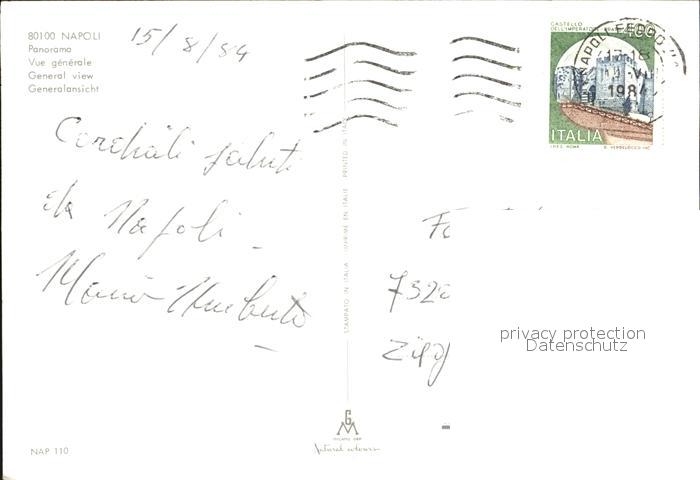 80100 NAPOLI
Panorama
Vue générale
General view
Generalansicht
15/8/84
Cordiali saluti
da Napoli -
Mario Umberto
STAMPATO IN ITALIA IMPRIMÉ EN ITALIE PRINTED IN
CASTELLO
DELL'IMPERATORE
400
NAPOLI FERROVIA
1984
ITALIA
I.P.Z.S. ROMA
Fe
7320
privacy protection
Datenschutz
NAP 110
Natural colours